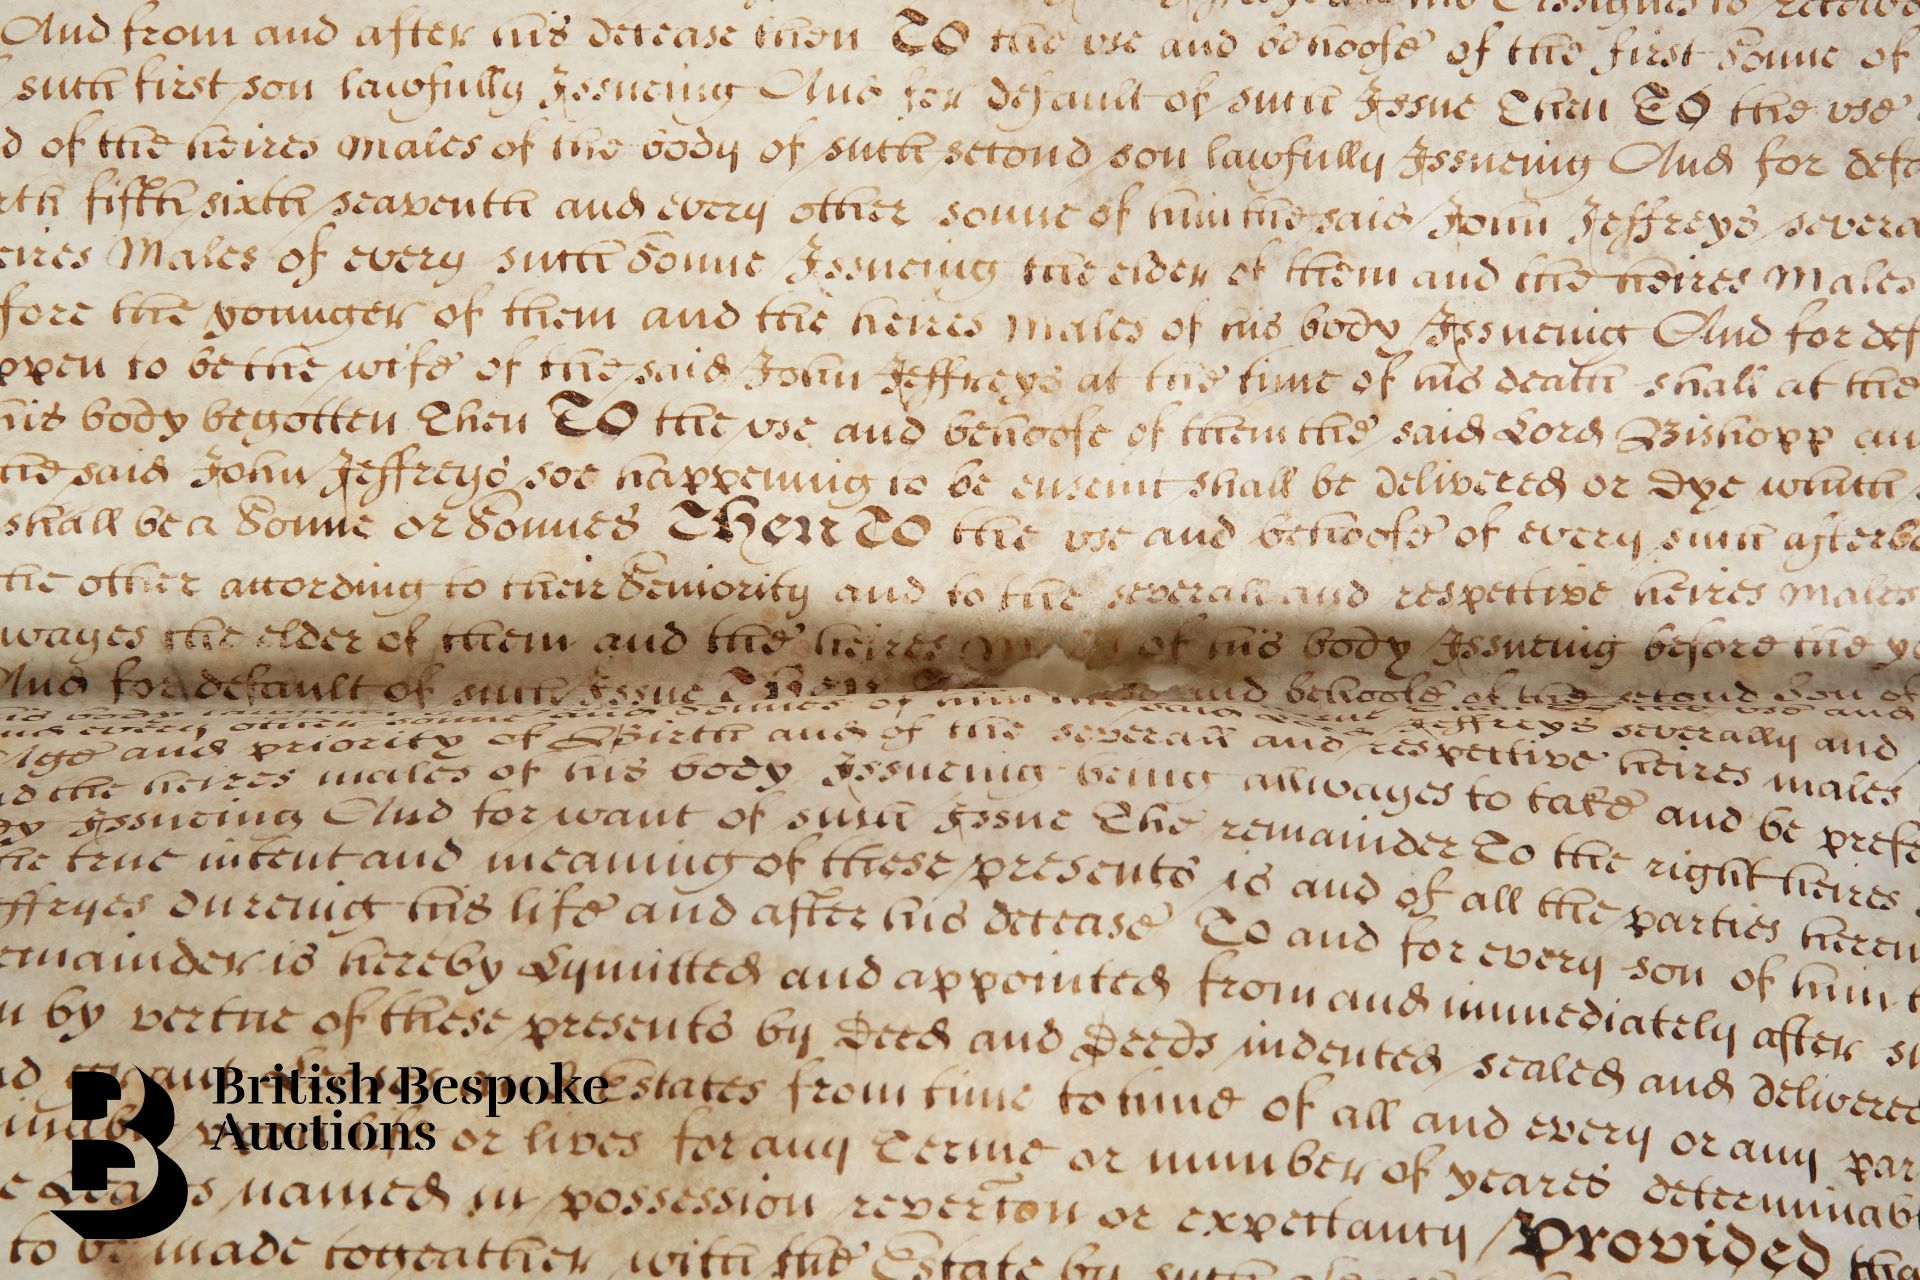 Assignes to receive
And from and after his decease then TO the use and behoofe of the first Sonne of
such first son lawfully Issueing And for default of such Issue Then TO the use
d of the heires males of the body of such second son lawfully Issueing And for defa
rth fifth sixth seaventh and every other sonne of him the said John Jeffreys severa
eires Males of every such Sonne Issueing the elder of them and the heires Males
fore the younger of them and the heires Males of his body Issueing And for def
ppen to be the wife of the said John Jeffreys at the time of his death shall at the
his body begotten Then TO the use and behoofe of them the said Lord Bishopp an
the said John Jeffreys soe happening to be enseint shall be delivered or Dye which
shall be a Sonne or Sonnes Then TO the use and behoofe of every such afterbo
the other according to their Seniority and to the severall and respective heires Males
wages the elder of them and the heires Males of his body Issueing before the yo
And for default of such Issue Then and behoofe of the second Son of
his body use and
and every other sonne and sonnes of him the said Jeffreys severally and
Age and priority of Birth and of the severall and respective heires males
nd the heires males of his body Issueing being allwayes to take and be prefe
dy Issueing And for want of such Issue The remainder To the right heires
the true intent and meaning of these presents is and of all the parties hereun
effryes dureing his life and after his decease To and for every son of him t
emainder is hereby Lymitted and appointed from and immediately after su
n by vertue of these presents by Deed and Deeds indented sealed and delivered
nd Estates from time to time of all and every or any par
or lives for any Terme or number of yeares determinab
e Leases named in possession reverton or expectancy Provided tha
to be made togeather with the Estate by such
British Bespoke
Auctions